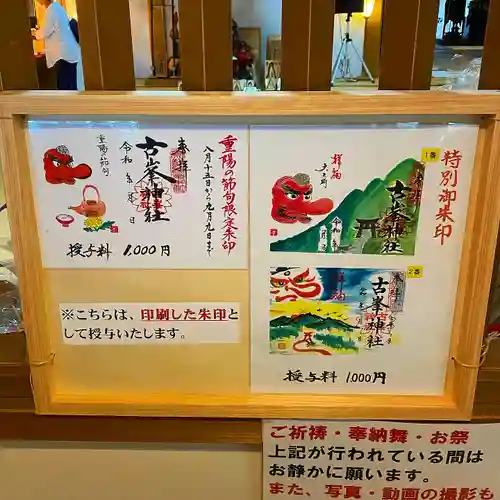 重陽の節句限定朱印
八月十五日から九月九日まで
奉拝
古峯神社
令和 年 月 日
重陽の節句
授与料 1,000円
※こちらは、印刷した朱印と
して授与いたします。
特別御朱印
1番
古峯神社
2番
古峯神社
授与料 1,000円
ご祈祷・奉納舞・お祭
上記が行われている間は
お静かに願います。
また、写真・動画の撮影も